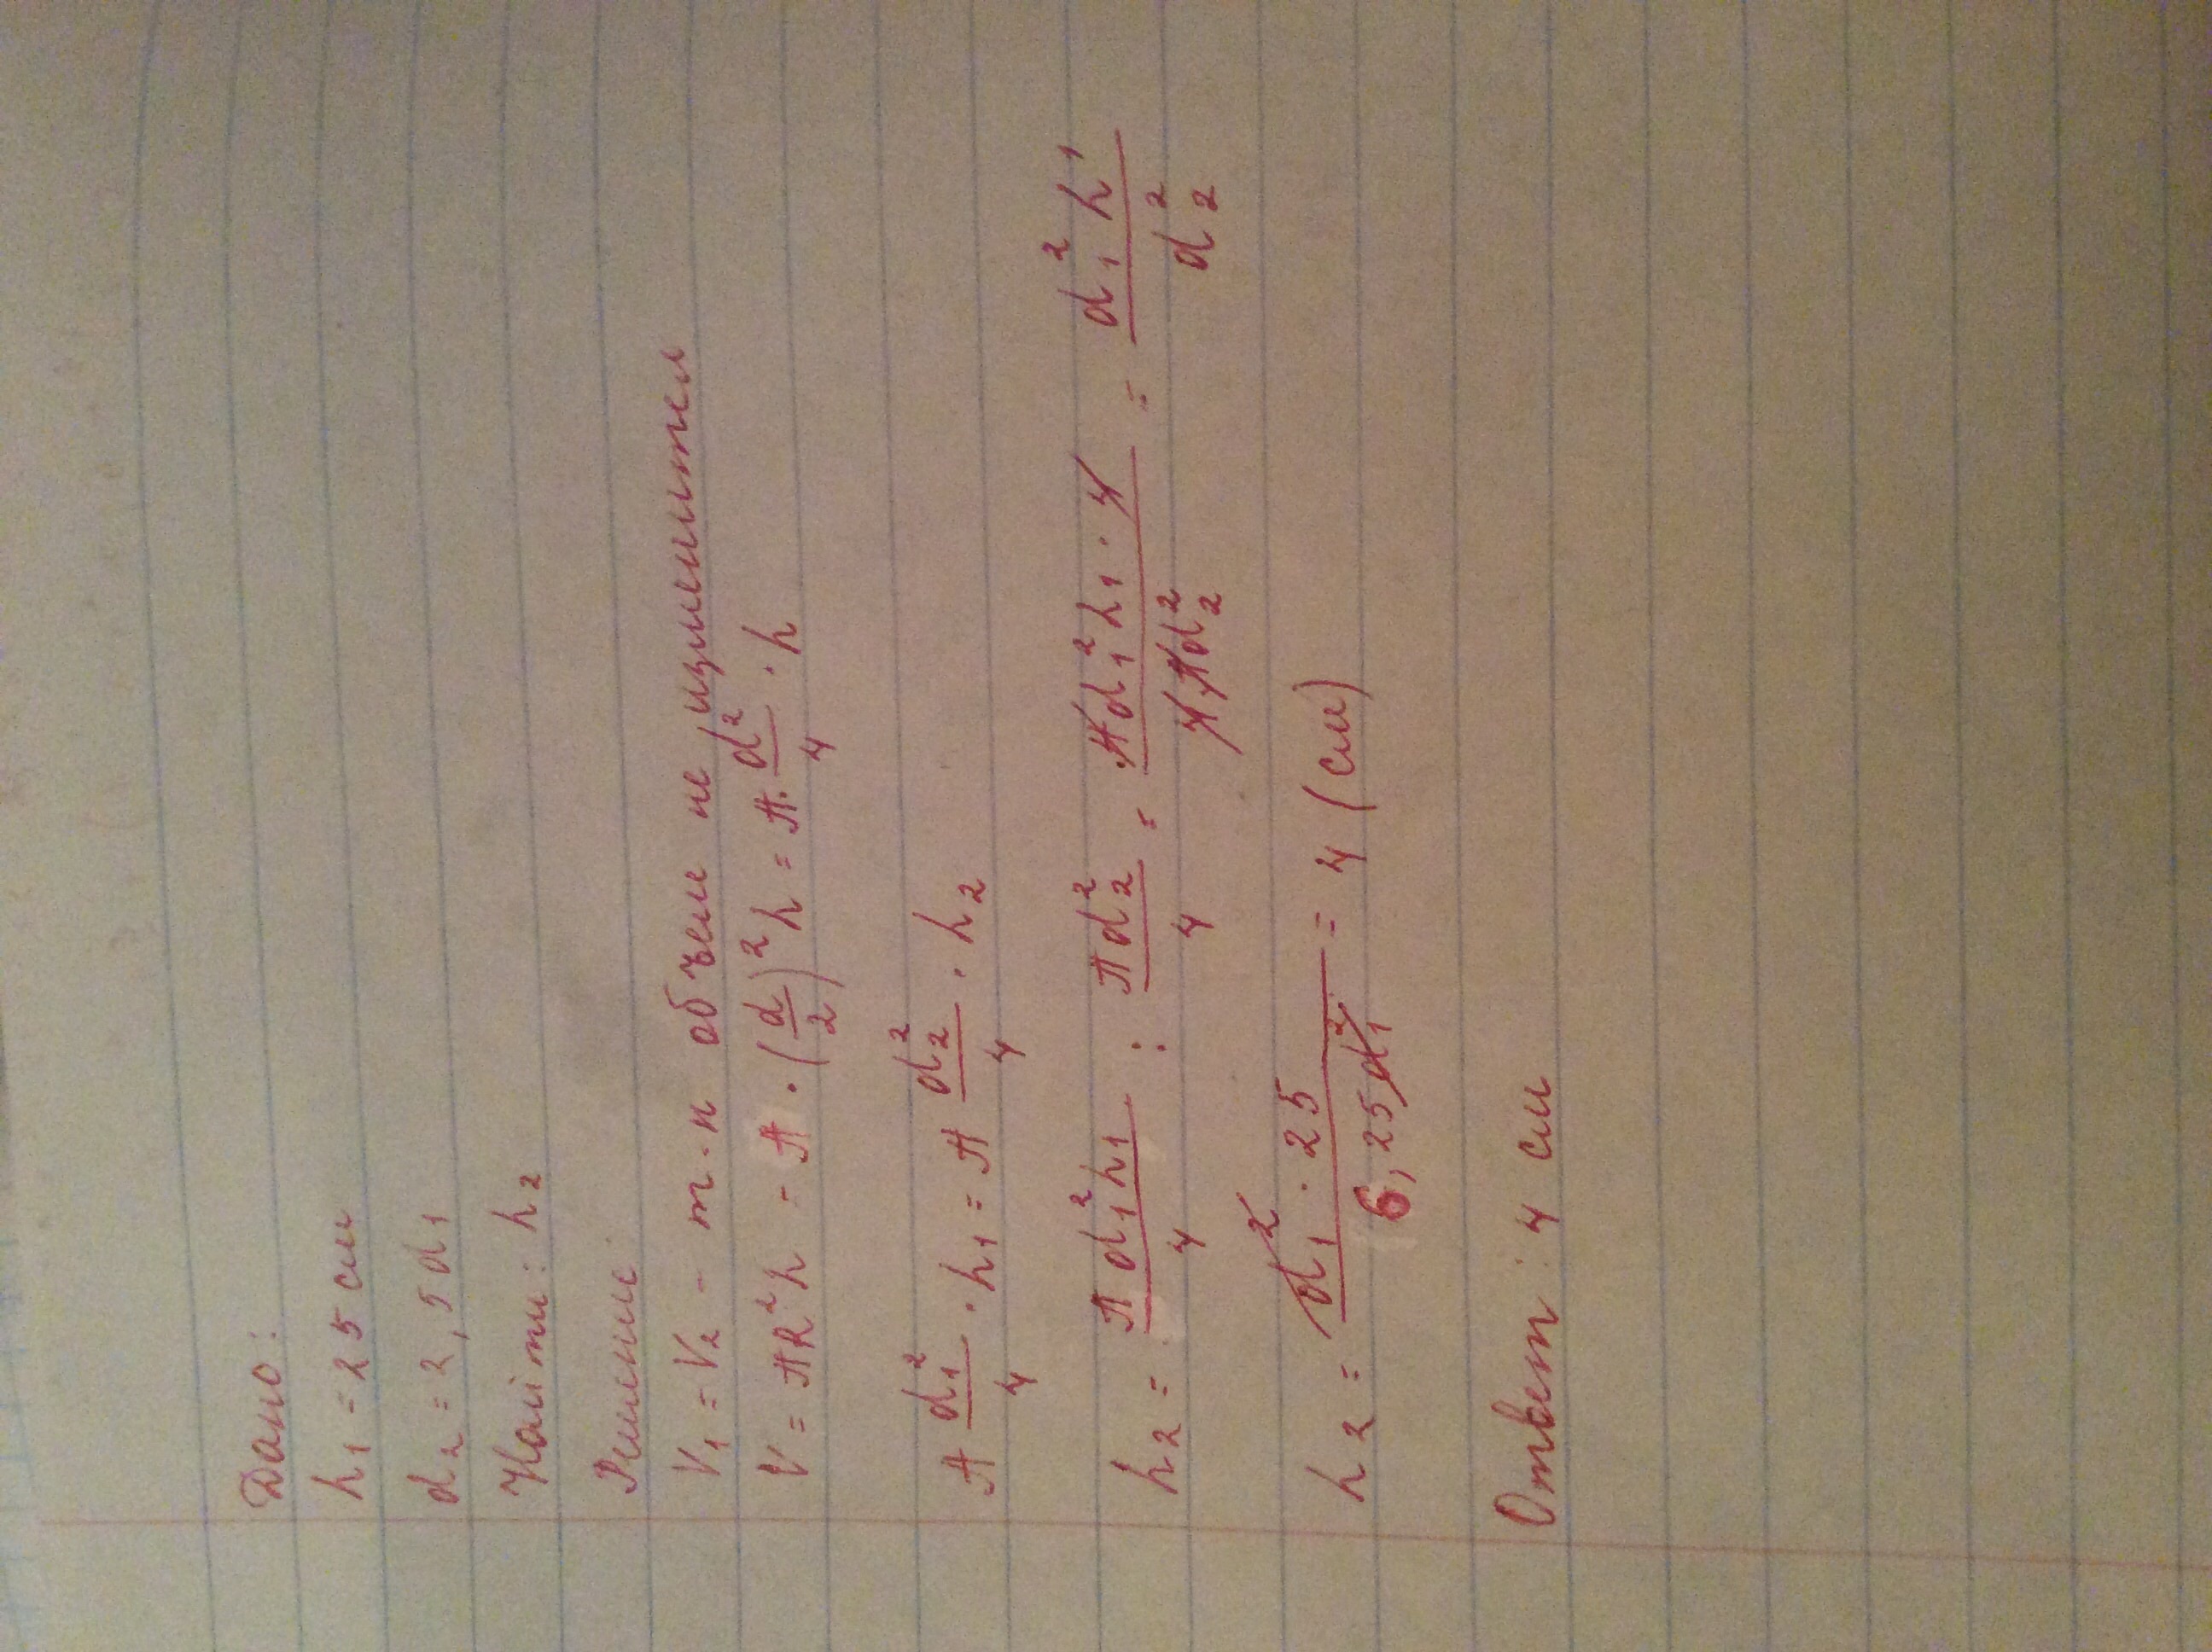 Дано:
h₁ = 25 см
d₂ = 2,5d₁
Найти: h₂
Решение:
V₁ = V₂ - т.к объем не изменится
V = πR²h = π · (d/2)² h = π · d²/4 · h
π d₁²/4 · h₁ = π d₂²/4 · h₂
h₂ = πd₁²h₁/4 : πd₂²/4 = πd₁²h₁ · 4/4πd₂² = d₁²h₁/d₂²
h₂ = d₁² · 25/6,25d₁² = 4 (см)
Ответ: 4 см